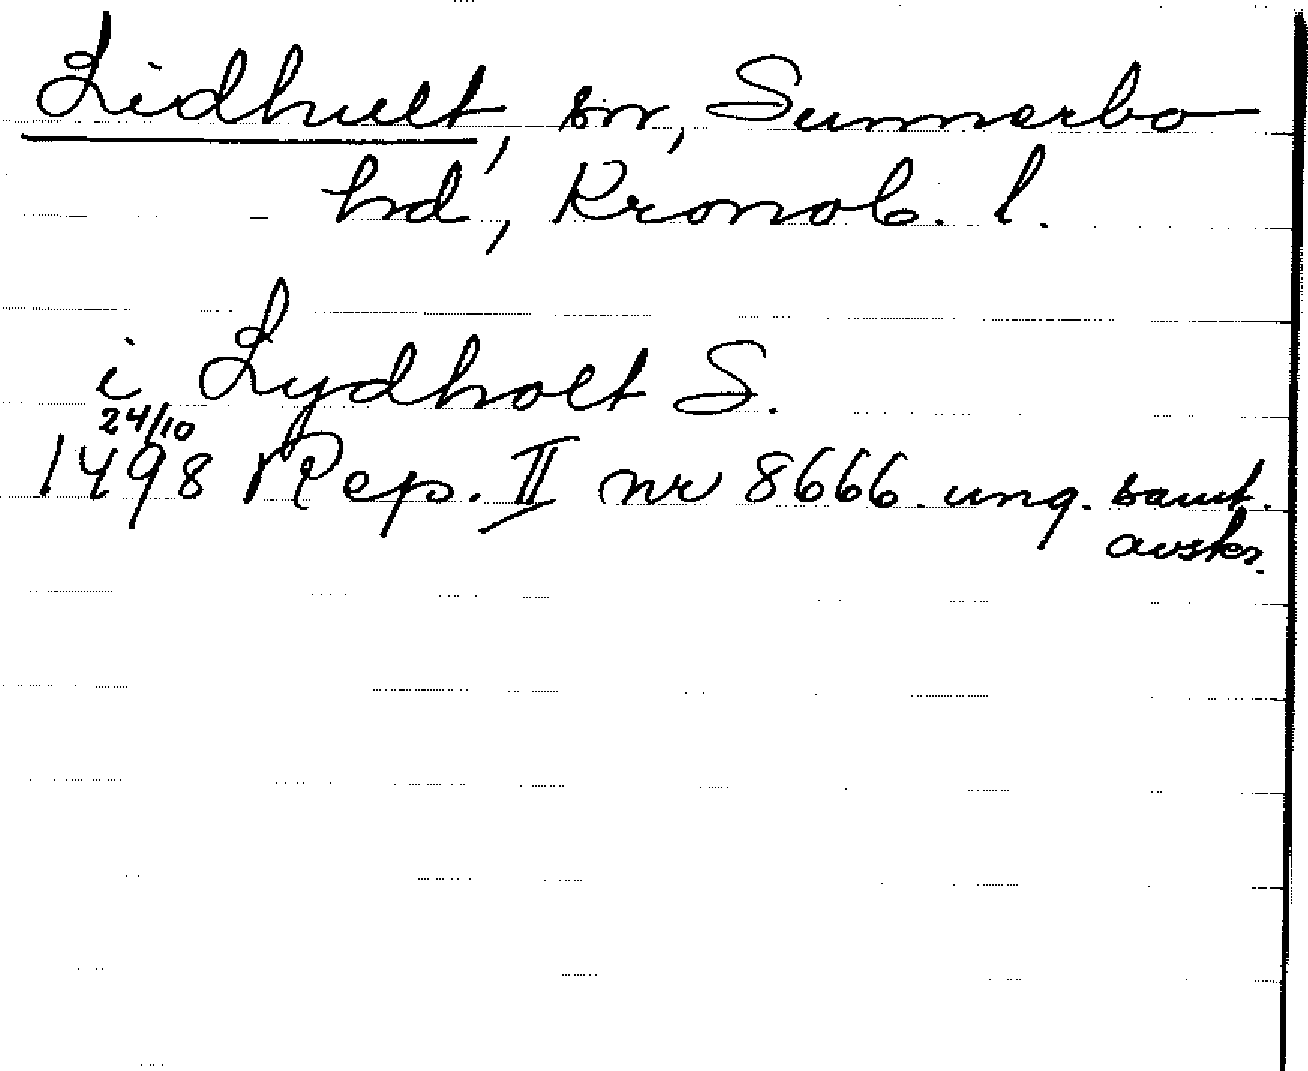 Lidhult, sn, Sunnerbo
hd, Kronob. l.
i Lydholt S.
24/10
1498 Rep. II nr 8666. ung. samt.
avskr.